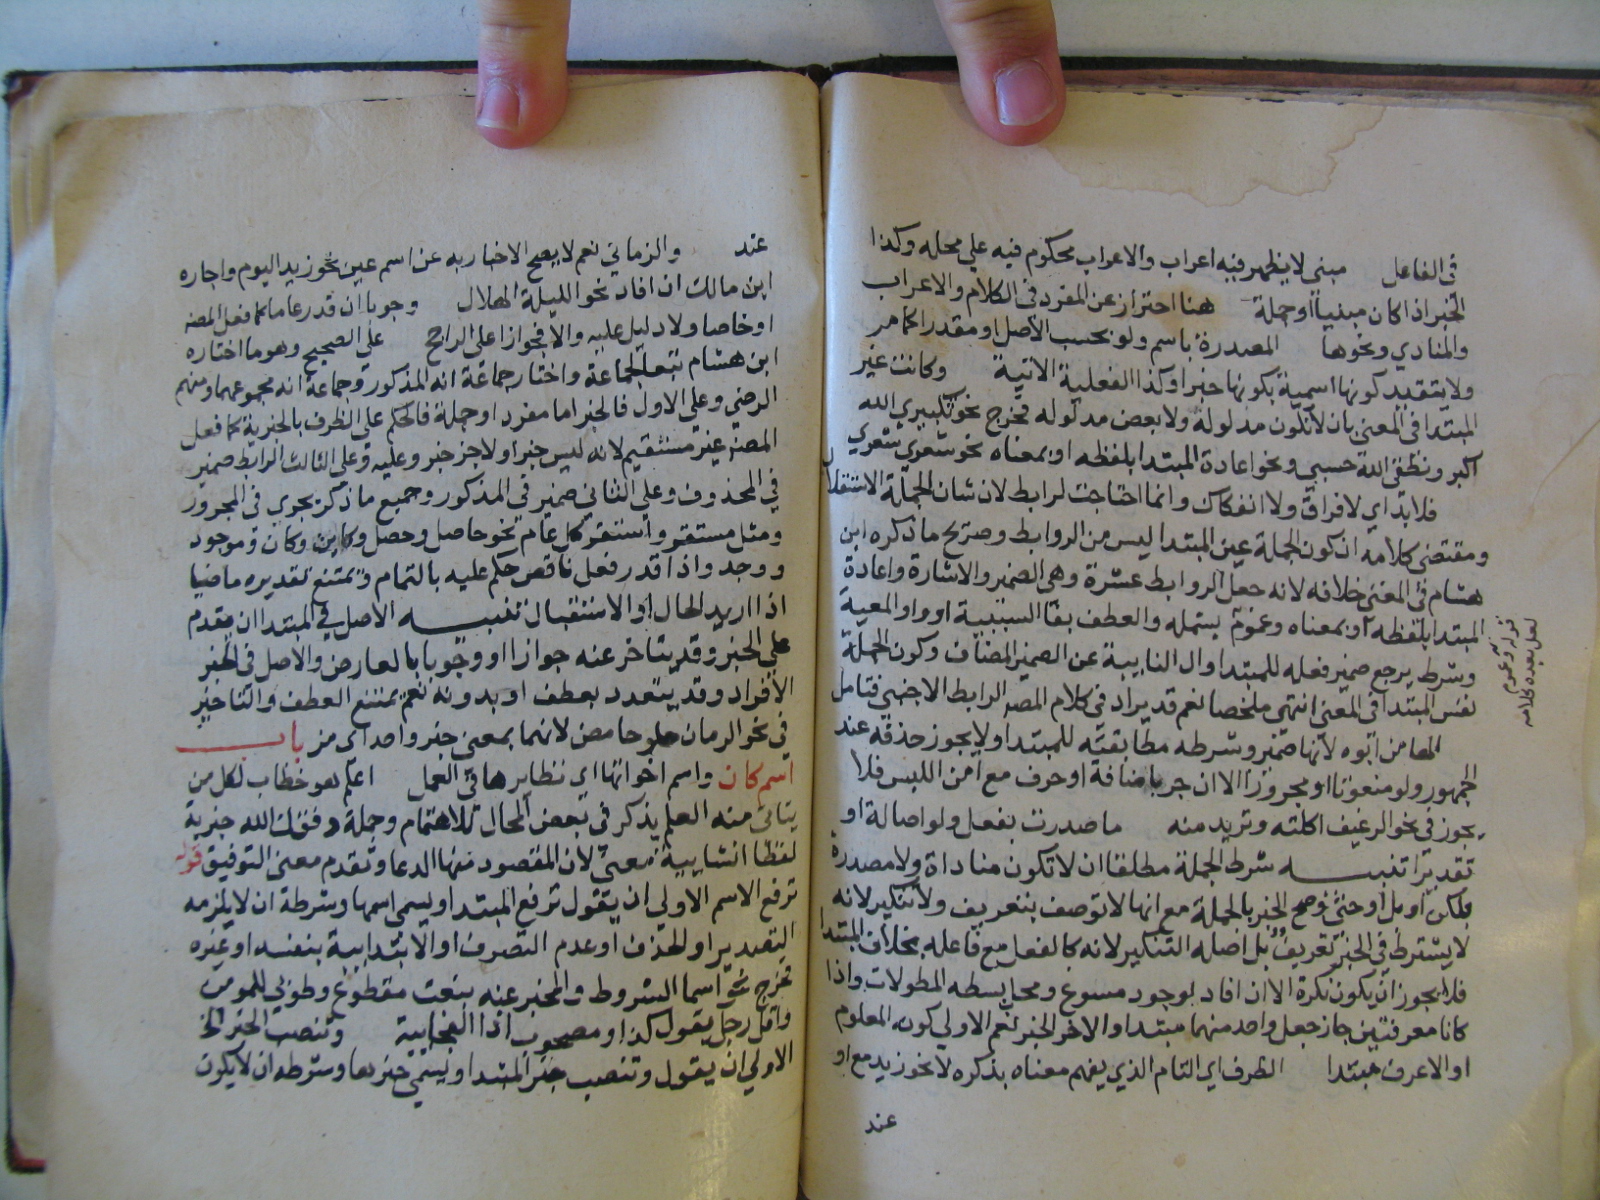 في الفاعل مبني لا يظهر فيه اعراب والاعراب محكوم فيه علي محله وكذا
الخبر اذا كان مبنيا او جملة هنا احتراز عن المفرد في الكلام والاعراب
والمنادي ونحوها المصدرة باسم ولو بحسب الاصل ومقدرا كما مر
ولا يتقيد كونها اسمية بكونها خبرا وكذا الفعلية الاتية وكانت غير
المبتدا في المعني بان لا تكون مدلوله ولا بعض مدلوله فخرج نحو تكبيري الله
اكبر ونطقي الله حسبي ونحو اعادة المبتدا بلفظه او بمعناه نحو شعري شعري
فلا بد اي لا فراق ولا انفكاك وانما احتاجت لرابط لان شان الجملة الاستقلال
ومقتضي كلامه ان كون الجملة عين المبتدا ليس من الروابط وصريح ما ذكره ابن
هشام في المغني خلافه لانه جعل الروابط عشرة وهي الضمير والاشارة واعادة
المبتدا بلفظه او بمعناه وعموم يشمله والعطف بفا السببية او واو المعية
وشرط يرجع ضمير فعله للمبتدا وال النايبة عن الضمير المضاف وكون الجملة
نفس المبتدا في المعني انتهي ملخصا نعم قد يراد في كلام المصـ الرابط الاجنبي فتامل
الها من ابوه لانها ضمير وشرطه مطابقته للمبتدا ولا يجوز حذفه عند
الجمهور ولو منعوتا او مجرورا الا ان جر باضافة او حرف مع امن اللبس فلا
يجوز في نحو الرغيف اكلته وتريد منه ما صدرت بفعل ولو اصالة او
تقديرا تنبيه شرط الجملة مطلقا ان لا تكون مناداة ولا مصدرة
بلكن او بل او حتي وصح الخبر بالجملة مع انها لا توصف بتعريف ولا تنكير لانه
لا يشترط في الخبر تعريف بل اصله التنكير لانه كالفعل مع فاعله بخلاف المبتدا
فلا يجوز ان يكون نكرة الا ان افاد بوجود مسوغ ومحل بسطه المطولات واذا
كانا معرفتين جاز جعل واحد منهما مبتدا والاخر الخبر نعم الاولي كون المعلوم
او الاعرف مبتدا الظرف اي التام الذي يفهم معناه بذكره لا نحو زيد مع او
عند
قوله وعموم
لعل بعده كلامه
عند والزماني نعم لا يصح الاخبار به عن اسم عين نحو زيد اليوم واجازه
ابن مالك ان افاد نحو الليلة الهلال وجوبا ان قدر عاما كما فعل المصنف
او خاصا ولا دليل عليه والا فجوازا علي الراجح علي الصحيح وهو ما اختاره
ابن هشام تبعا لجماعة واختار جماعة انه المذكور وجماعة انه مجموعهما ومنهم
الرضي وعلي الاول فالخبر اما مفرد او جملة فالحكم علي الظرف بالخبرية كما فعل
المصنـ غير مستقيم لانه ليس خبرا ولا جز خبر وعليه وعلي الثالث الرابط ضمير
في المحذوف وعلي الثاني ضمير في المذكور وجميع ما ذكر يجري في المجرور
ومثل مستقر واستقر كل عام نحو حاصل وحصل وكاين وكان وموجود
ووجد واذا قدر فعل ناقص حكم عليه بالتمام ويمتنع تقديره ماضيا
اذا اريد الحال او الاستقبال تنبيه الاصل في المبتدا ان يقدم
علي الخبر وقد يتاخر عنه جوازا او وجوبا بالعارض والاصل في الخبر
الافراد وقد يتعدد بعطف او بدونه نعم يمتنع العطف والتاخير
في نحو الرمان حلو حامض لانهما بمعني خبر واحد اي مز باب
اسم كان واسم اخواتها اي نظايرها في العمل اعلم هو خطاب لكل من
يتاتي منه العلم يذكر في بعض المحال للاهتمام وجملة وفقك الله خبرية
لفظا انشايية معني لان المقصود منها الدعا وتقدم معني التوفيق قوله
ترفع الاسم الاولي ان يقول ترفع المبتدا ويسمي اسمها وشرطه ان لا يلزمه
التصدير او الحذف او عدم التصرف او الابتدايية بنفسه او غيره
فخرج نحو اسما الشروط والمخبر عنه بنعت مقطوع وطوبي للمومن
واقل رجل يقول كذا ومصحوب اذا الفجايية وتنصب الخبر الخ
الاولي ان يقول وتنصب خبر المبتدا ويسمي خبرها وشرطه ان لا يكون